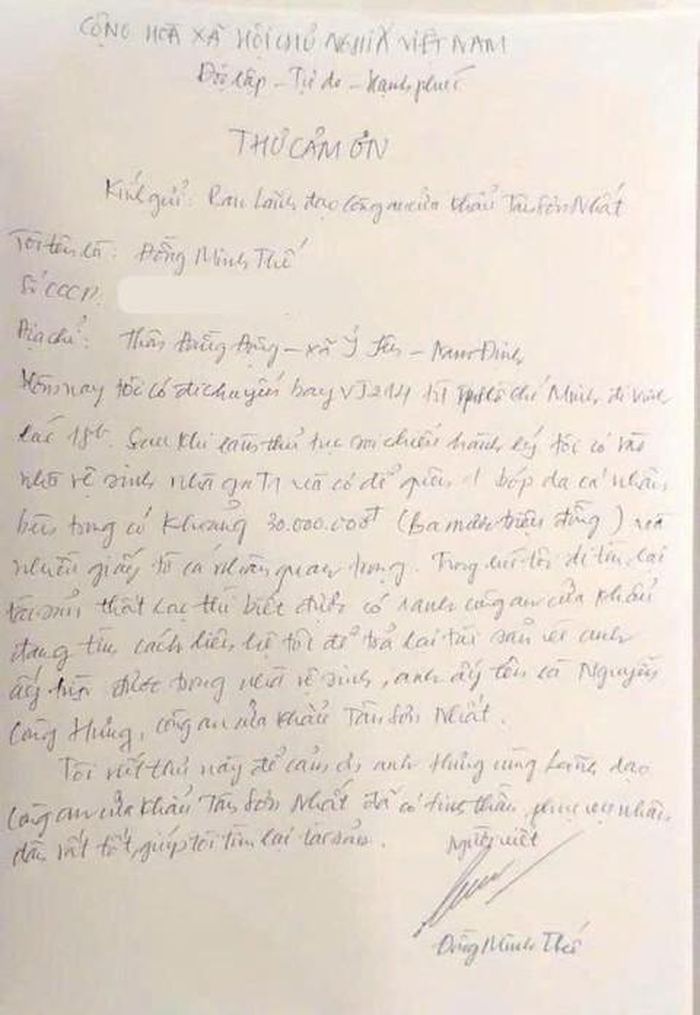 CỘNG HOÀ XÃ HỘI CHỦ NGHĨA VIỆT NAM
Độc lập - Tự do - Hạnh phúc
THƯ CẢM ƠN
Kính gửi: Ban Lãnh đạo công an cửa khẩu Tân Sơn Nhất
Tôi tên là: Đồng Minh Thế
Số CCCD:
Địa chỉ: Thôn Đằng Động - xã Ý Yên - Nam Định
Hôm nay tôi có đi chuyến bay VJ214 từ TP Hồ Chí Minh đi Vinh
lúc 18h. Sau khi làm thủ tục soi chiếu hành lý tôi có vào
nhà vệ sinh nhà ga T1 và có để quên 1 bóp da cá nhân
bên trong có khoảng 30.000.000đ (Ba mươi triệu đồng) và
nhiều giấy tờ cá nhân quan trọng. Trong lúc tôi đi tìm lại
tài sản thất lạc thì biết được có 1 anh công an cửa khẩu
đang tìm cách liên hệ tôi để trả lại tài sản và anh
ấy nhặt được trong nhà vệ sinh, anh ấy tên là Nguyễn
Công Hưng, công an cửa khẩu Tân Sơn Nhất.
Tôi viết thư này để cảm ơn anh Hưng cùng Lãnh đạo
công an cửa khẩu Tân Sơn Nhất đã có tinh thần phục vụ nhân
dân rất tốt, giúp tôi tìm lại tài sản.
Người viết
Đồng Minh Thế